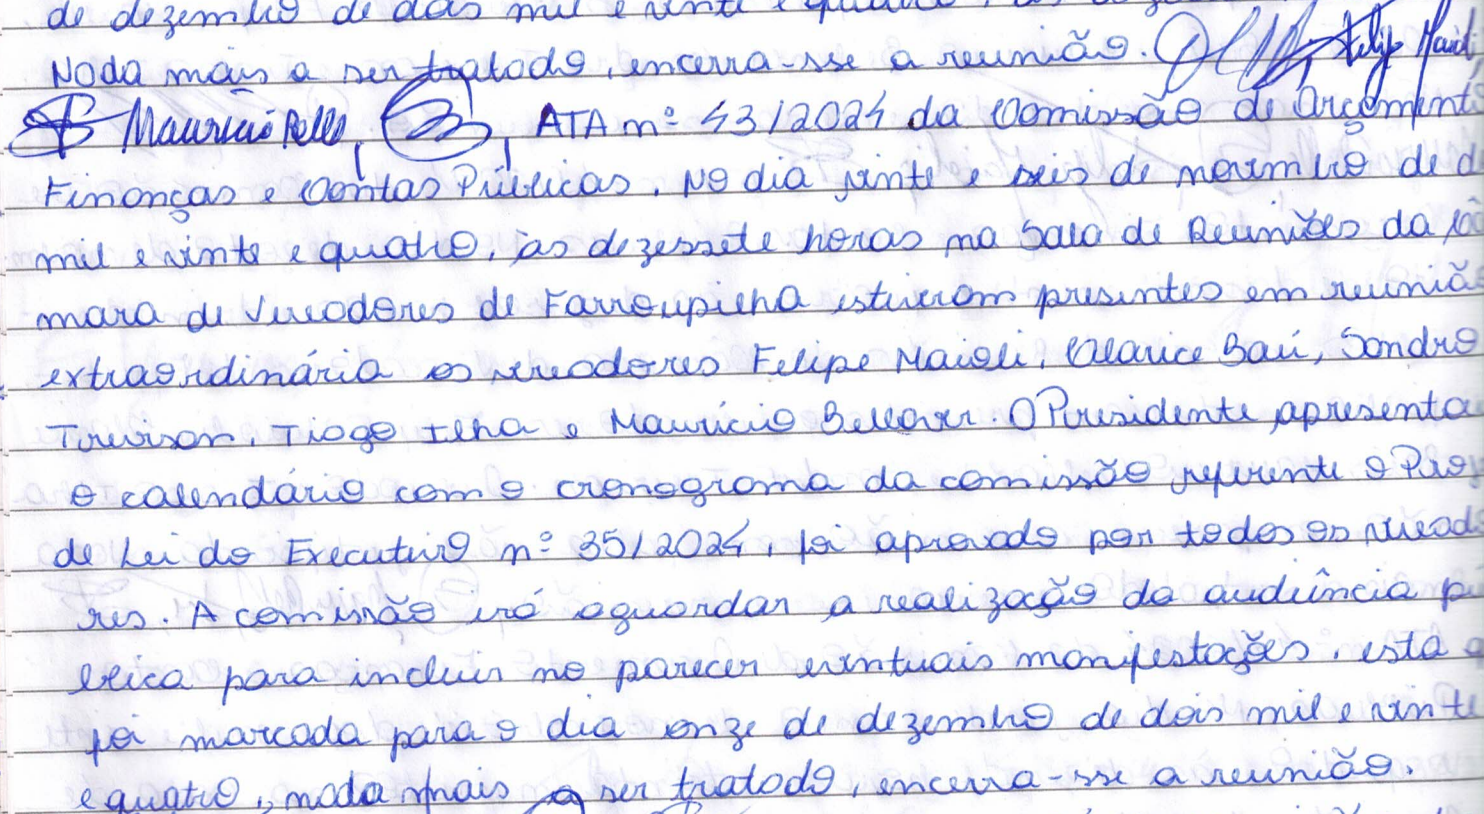 de dezembro de dois mil e vinte e quatro, às
Nada mais a ser tratado, encerra-sse a reunião. Felipe Maioli
Maurício Bello, ATA nº 43/2024 da Comissão de Orçamento
Finanças e Contas Públicas. No dia vinte e seis de novembro de d
mil e vinte e quatro, às dezessete horas na Sala de Reuniões da Câ
mara de Vereadores de Farroupilha estiveram presentes em reuniã
extraordinária os vereadores Felipe Maioli, Clarice Baú, Sandro
Trevisan, Tiago Ilha e Maurício Bellaver. O Presidente apresenta
o calendário com o cronograma da comissão referente o Pro
de Lei do Executivo nº 35/2024, foi aprovado por todos os veread
res. A comissão irá aguardar a realização da audiência p
blica para incluir no parecer eventuais manifestações, esta
foi marcada para o dia onze de dezembro de dois mil e vinte
e quatro, nada mais a ser tratado, encerra-sse a reunião.